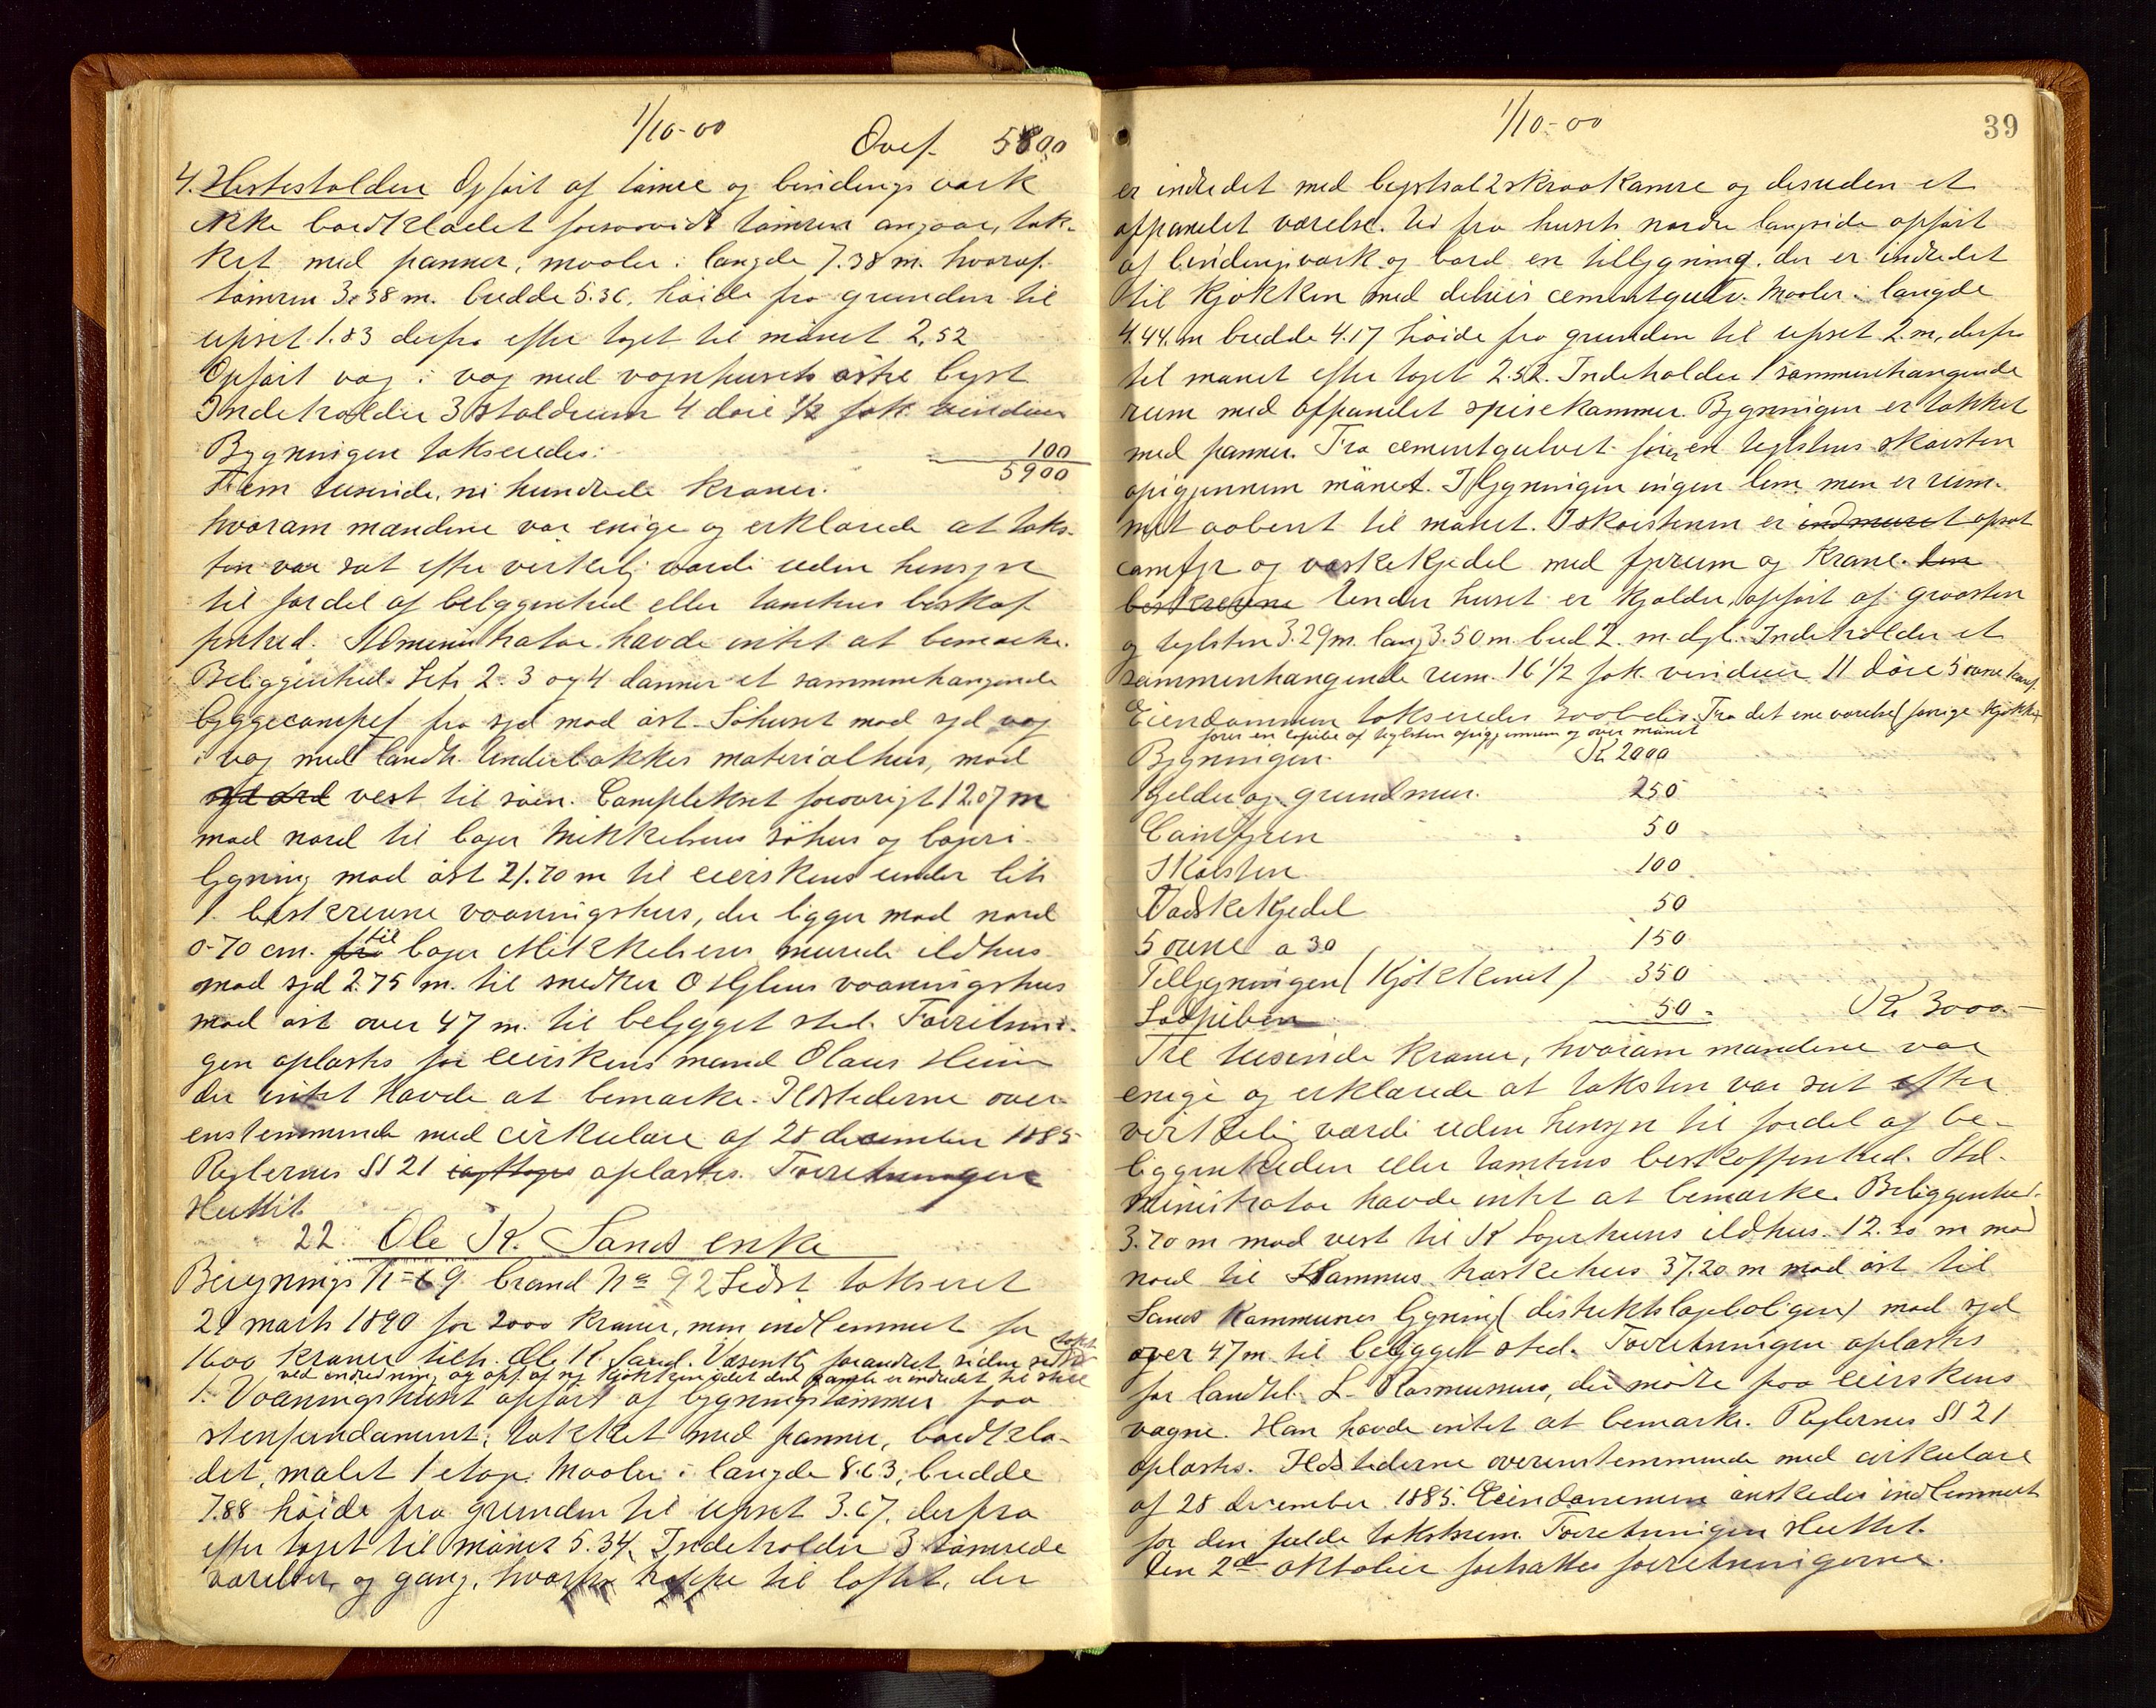 1/10-00
Overf. 5800
4. Hestestalden Opført af tømer og bindingsværk
ikke bordklædet forsaavidt tømren angaar, tæk-
ket med panner, maaler i længde 7.38 m. hvoraf
tømren 3.38 m. bredde 5.36, høide fra grunden til
upset 1.83 derfra efter taget til mønet 2,52
Opført væg i væg med vognhusets østre
Indeholder 3 staldrum 4 døre 1/2 fak vinduer
Bygningen takseredes: 100
5900
Fem tusinde, ni hundrede kroner.
hvorom mændene var enige og erklærede at taks-
ten var sat efter virkelig værdi uden hensyn
til fordel af beliggenhed eller tomtens beskaf
fenhed. Administrator havde intet at bemærke.
Beliggenhed. Litr 2. 3 og 4 danner et sammenhængende
byggecomplex fra syd mod øst. Søhuset mod syd væg
i væg med landh. Underbakkes materialhus, mod
vest til søen. Complekset forøvrigt 12.07 m
mod nord til bager Mikkelsens søhus og bageri-
bygning mod øst 21.70 m til eierskens under litr
1. beskrevne vaaningshus, der ligger mod nord
0.70 cm. fra til bager Mikkelsens murede ildhus
mod syd 2.75 m. til snedker O vaaningshus
mod øst over 47 m. til bebygget sted. Forretnin-
gen oplæstes for eierskens mand Olaus Heim
der intet havde at bemærke. Ildstederne over-
ensstemmende med cirkulære af 28 december 1885
Reglernes §§ 21 iagttages oplæstes. Forretningen
sluttet.
22. Ole K. Sands enke
Bygnings No 69 brand No 92 Sidst takseret
21 marts 1890 for 2000 kroner, men indlemmet for
1600 kroner tilh. Ole K. Sand. Væsentlig forandret siden sidste takst
ved indredning og opf. af ny kjøkken idet det gamle er indredet til
1. Vaaningshuset opført af bygningstømmer paa
stenfundament, tækket med panner, bordklæ-
det, malet 1 etage. Maaler i længde 8.63, bredde
7.88 høide fra grunden til upset 3.67, derfra
efter taget til mønet 5.34. Indeholder 3 tømrede
værelser, og gang, hvorfra trappe til loftet, der
1/10-00
39
er indredet med 2 skraakamre og desuden et
afpanelet værelse. Ud fra husets nordre langside opført
af bindingsværk og bord en tilbygning, der er indredet
til kjøkken med delvis cementgulv. Maaler i længde
4.44. m bredde 4.17 høide fra grunden til upset 2. m, derfra
til mønet efter taget 2.52. Indeholder 1 sammenhængende
rum med afpanelet spisekammer. Bygningen er tækket
med panner. Fra cementgulvet fører en teglstens skorsten
opigjennem mønet. I bygningen ingen lem men er rum-
met aabent til mønet. I skorstenen er indmuret opsat
comfyr og vaskekjedel med fyrrum og krane. den
beskrevne Under huset er kjælder, opført af graasten
og teglsten 3.29 m. lang 3.50 m. bred 2. m. dyb. Indeholder et
sammenhængende rum. 16 1/2 fak. vinduer 11 døre 5 ovne
Eiendommen takseredes saaledes. Fra det ene værelse (forrige kjøkken
fører en af teglsten opigjennem og over mønet
Bygningen. Kr 2000
Kjelder og grundmur. 250
Comfyren 50
Skorsten 100
Vadskekjedel 50
5 ovne a 30 150
Tilbygningen (Kjøkkenet) 350
50 - Kr 3000 -
Tre tusinde kroner, hvorom mændene var
enige og erklærede at taksten var sat efter
virkelig værdi uden hensyn til fordel af be-
liggenheden eller tomtens beskaffenhed. Ad-
ministrator havde intet at bemærke. Beliggenhed.
3.70 m mod vest til K ildhus. 12.30 m mod
nord til 37.20 m mod øst til
Sands Kommunes bygning (distriktslægeboligen) mod syd
over 47 m. til bebygget sted. Forretningen oplæstes
for landhl. L. Rasmussen, der mødte paa eierskens
vegne. Han havde intet at bemærke. Reglernes §§ 21
oplæstes. Ildstederne overensstemmende med cirkulære
af 28 december 1885. Eiendommen ønskedes indlemmet
for den fulde takstsum. Forretningen sluttet.
Den 2den oktober fortsattes forretningerne.